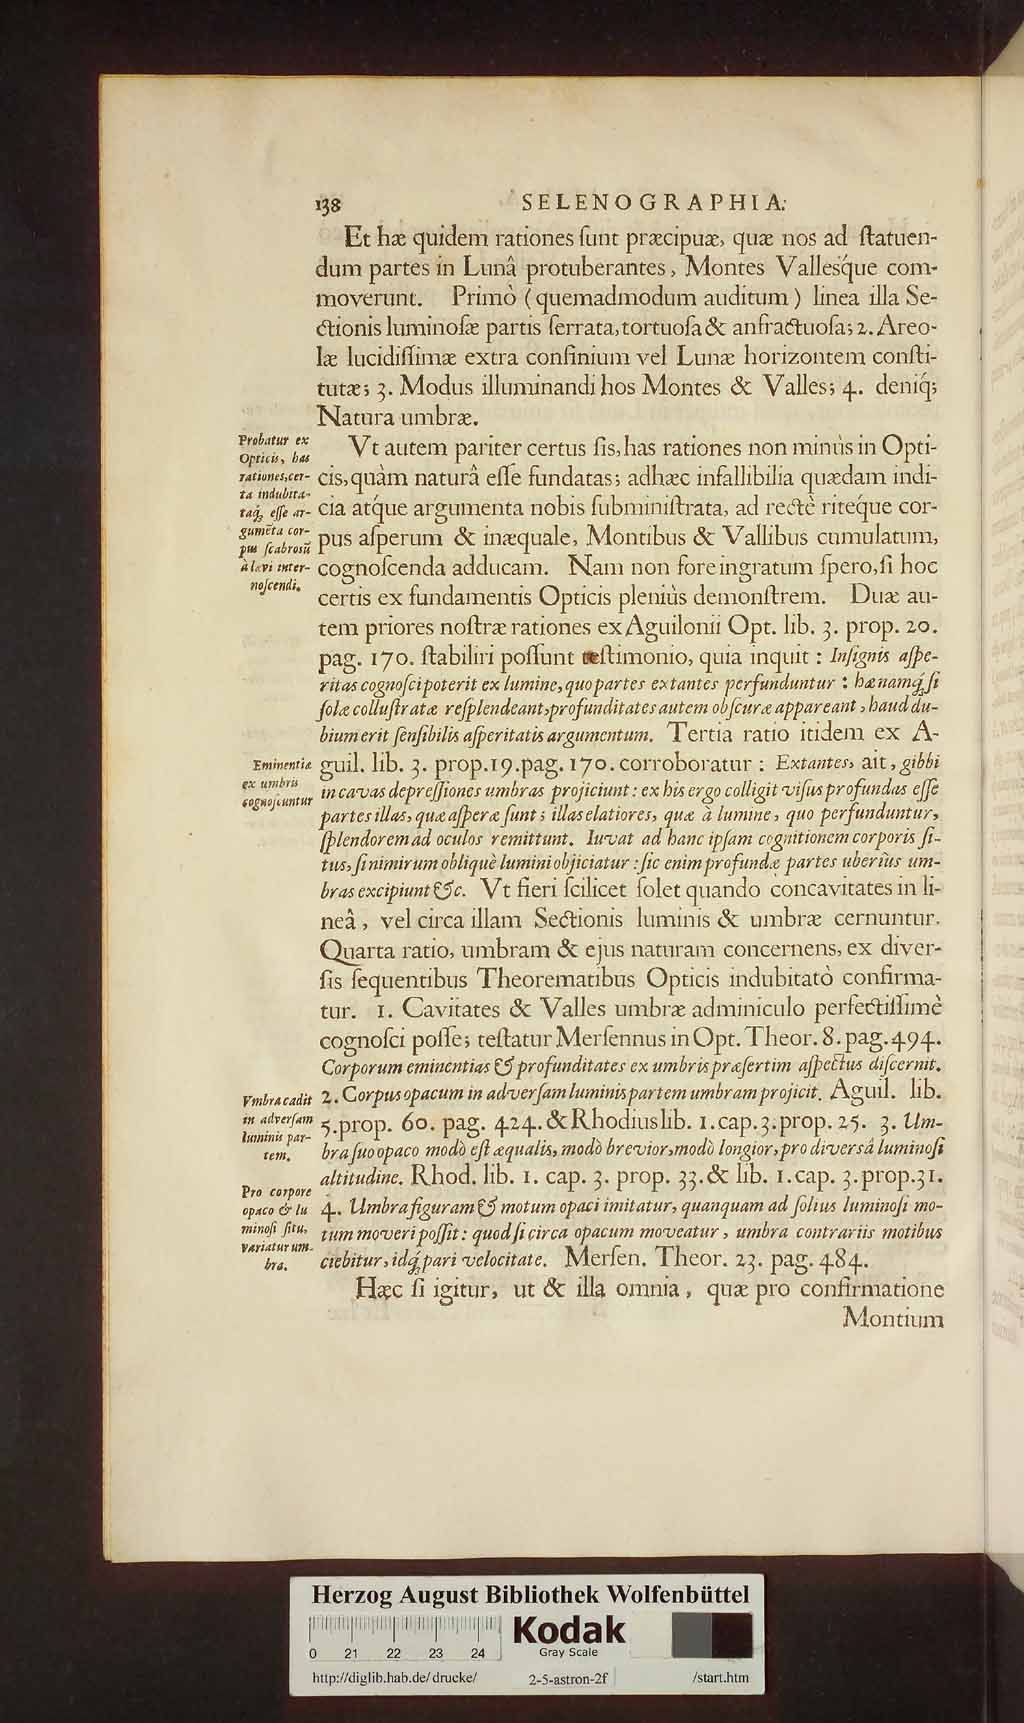 138 SELENOGRAPHIA.
Et hæ quidem rationes ſunt præcipuæ, quæ nos ad ſtatuen-
dum partes in Lunâ protuberantes, Montes Vallesq́ue com-
moverunt. Primò (quemadmodum auditum) linea illa Se-
ctionis luminoſæ partis ſerrata, tortuoſa & anfractuoſa; 2. Areo-
læ lucidiſſimæ extra confinium vel Lunæ horizontem conſti-
tutæ; 3. Modus illuminandi hos Montes & Valles; 4. deniq́;
Natura umbræ.
Probatur ex
Opticis, has
rationes, cer-
ta indubita-
taq́; eſſe ar-
gumẽta cor-
pus ſcabrosũ
à lævi inter-
noſcendi.
Vt autem pariter certus ſis, has rationes non minùs in Opti-
cis, quàm naturâ eſſe fundatas; adhæc infallibilia quædam indi-
cia atq́ue argumenta nobis ſubminiſtrata, ad rectè riteq́ue cor-
pus aſperum & inæquale, Montibus & Vallibus cumulatum,
cognoſcenda adducam. Nam non fore ingratum ſpero, ſi hoc
certis ex fundamentis Opticis pleniùs demonſtrem. Duæ au-
tem priores noſtræ rationes ex Aguilonii Opt. lib. 3. prop. 20.
pag. 170. ſtabiliri poſſunt teſtimonio, quia inquit: Inſignis aſpe-
ritas cognoſci poterit ex lumine, quo partes extantes perfunduntur: hæ namq́; ſi
ſolæ colluſtratæ reſplendeant, profunditates autem obſcuræ appareant, haud du-
bium erit ſenſibilis aſperitatis argumentum. Tertia ratio itidem ex A-
Eminentiæ
ex umbris
cognoſcuntur
guil. lib. 3. prop. 19. pag. 170. corroboratur: Extantes, ait, gibbi
in cavas depreſſiones umbras projiciunt: ex his ergo colligit viſus profundas eſſe
partes illas, quæ aſperæ ſunt; illas elatiores, quæ à lumine, quo perfunduntur,
ſplendorem ad oculos remittunt. Iuvat ad hanc ipſam cognitionem corporis ſi-
tus, ſi nimirum obliquè lumini objiciatur: ſic enim profundæ partes uberiùs um-
bras excipiunt &c. Vt fieri ſcilicet ſolet quando concavitates in li-
neâ, vel circa illam Sectionis luminis & umbræ cernuntur.
Quarta ratio, umbram & ejus naturam concernens, ex diver-
ſis ſequentibus Theorematibus Opticis indubitatò confirma-
tur. 1. Cavitates & Valles umbræ adminiculo perfectiſſimè
cognoſci poſſe; teſtatur Merſennus in Opt. Theor. 8. pag. 494.
Corporum eminentias & profunditates ex umbris præſertim aſpectus diſcernit.
Vmbra cadit
in adverſam
luminis par-
tem.
2. Corpus opacum in adverſam luminis partem umbram projicit. Aguil. lib.
5. prop. 60. pag. 424. & Rhodius lib. 1. cap. 3. prop. 25. 3. Um-
bra ſuo opaco modò eſt æqualis, modò brevior, modò longior, pro diversâ luminoſi
altitudine. Rhod. lib. 1. cap. 3. prop. 33. & lib. 1. cap. 3. prop. 31.
Pro corpore
opaco & lu
minoſi ſitu,
variatur um-
bra.
4. Umbra figuram & motum opaci imitatur, quanquam ad ſolius luminoſi mo-
tum moveri poſſit: quod ſi circa opacum moveatur, umbra contrariis motibus
ciebitur, idq́; pari velocitate. Merſen. Theor. 23. pag. 484.
Hæc ſi igitur, ut & illa omnia, quæ pro confirmatione
Montium
Herzog August Bibliothek Wolfenbüttel
Kodak
Gray Scale
0 21 22 23 24
http://diglib.hab.de/drucke/ 2-5-astron-2f /start.htm